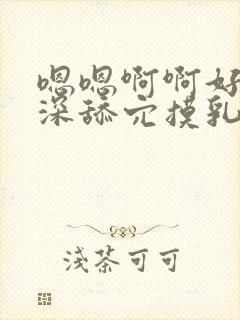 嗯嗯啊啊好
深舔穴摸乳
浅茶可可